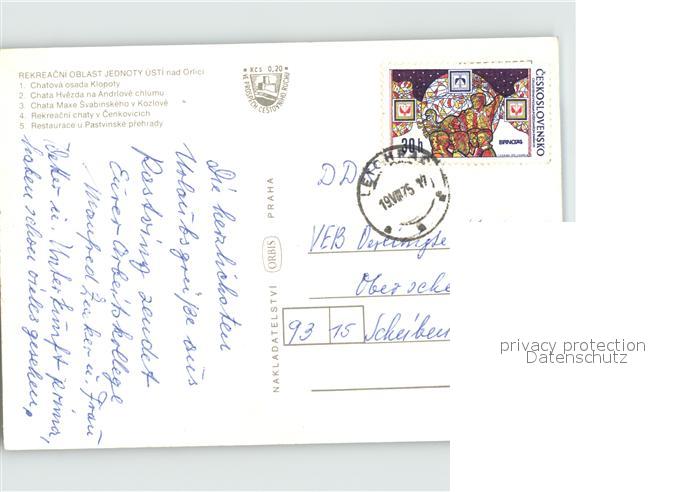 REKREAČNÍ OBLAST JEDNOTY ÚSTÍ nad Orlicí
1. Chatová osada Klopoty
2. Chata Hvězda na Andrlově chlumu
3. Chata Maxe Švabinského v Kozlově
4. Rekreační chaty v Čenkovicích
5. Restaurace u Pastvinské přehrady
KČS 0,20
VE PROSPĚCH CESTOVNÍHO RUCHU
ČESKOSLOVENSKO
30 h
19.VIII.75
Die herzlichsten
Urlaubsgrüße aus
sendet
Eurer Arbeitskollege
Manfred u. Frau
Wetter u. Unterkunft prima,
haben schon vieles gesehen.
NAKLADATELSTVÍ ORBIS PRAHA
DD
VEB Vereinigte
Obersche
93 15 Scheiben
privacy protection
Datenschutz